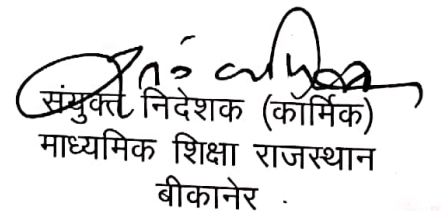 संयुक्त निदेशक (कॉर्मिक)
माध्यमिक शिक्षा राजस्थान
बीकानेर